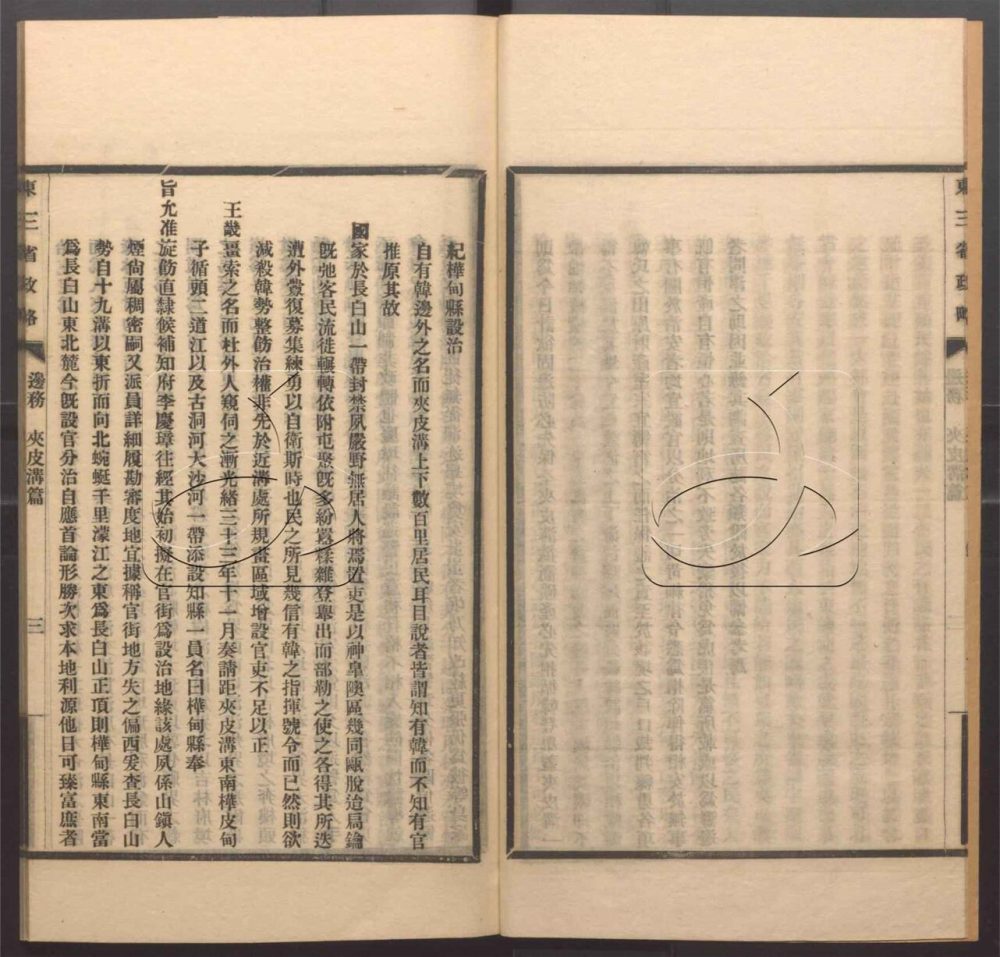 東三省政略
紀樺甸縣設治
自有韓邊外之名而夾皮溝上下數百里居民耳目說者皆謂知有韓而不知有官
推原其故
國家於長白山一帶封禁夙嚴野無居人將焉置吏是以神皐隩區幾同甌脫迨扃鑰
既弛客民流徙輾轉依附屯聚既多紛囂糅雜登舉出而部勒之使之各得其所迭
遭外釁復募集練勇以自衛斯時也民之所見幾信有韓之指揮號令而已然則欲
減殺韓勢整飭治權非先於近溝處所規畫區域增設官吏不足以正
王畿畺索之名而杜外人窺伺之漸光緒三十三年十一月奏請距夾皮溝東南樺皮甸
子循頭二道江以及古洞河大沙河一帶添設知縣一員名曰樺甸縣奉
旨允准旋飭直隸候補知府李慶璋往經其始初擬在官街爲設治地緣該處夙係山鎭人
煙尙屬稠密嗣又派員詳細履勘審度地宜據稱官街地方失之偏西爰查長白山
勢自十九溝以東折而向北蜿蜒千里濛江之東爲長白山正頂則樺甸縣東南當
爲長白山東北麓今旣設官分治自應首論形勝次求本地利源他日可臻富庶者
東三省政略
邊務 夾皮溝篇
三